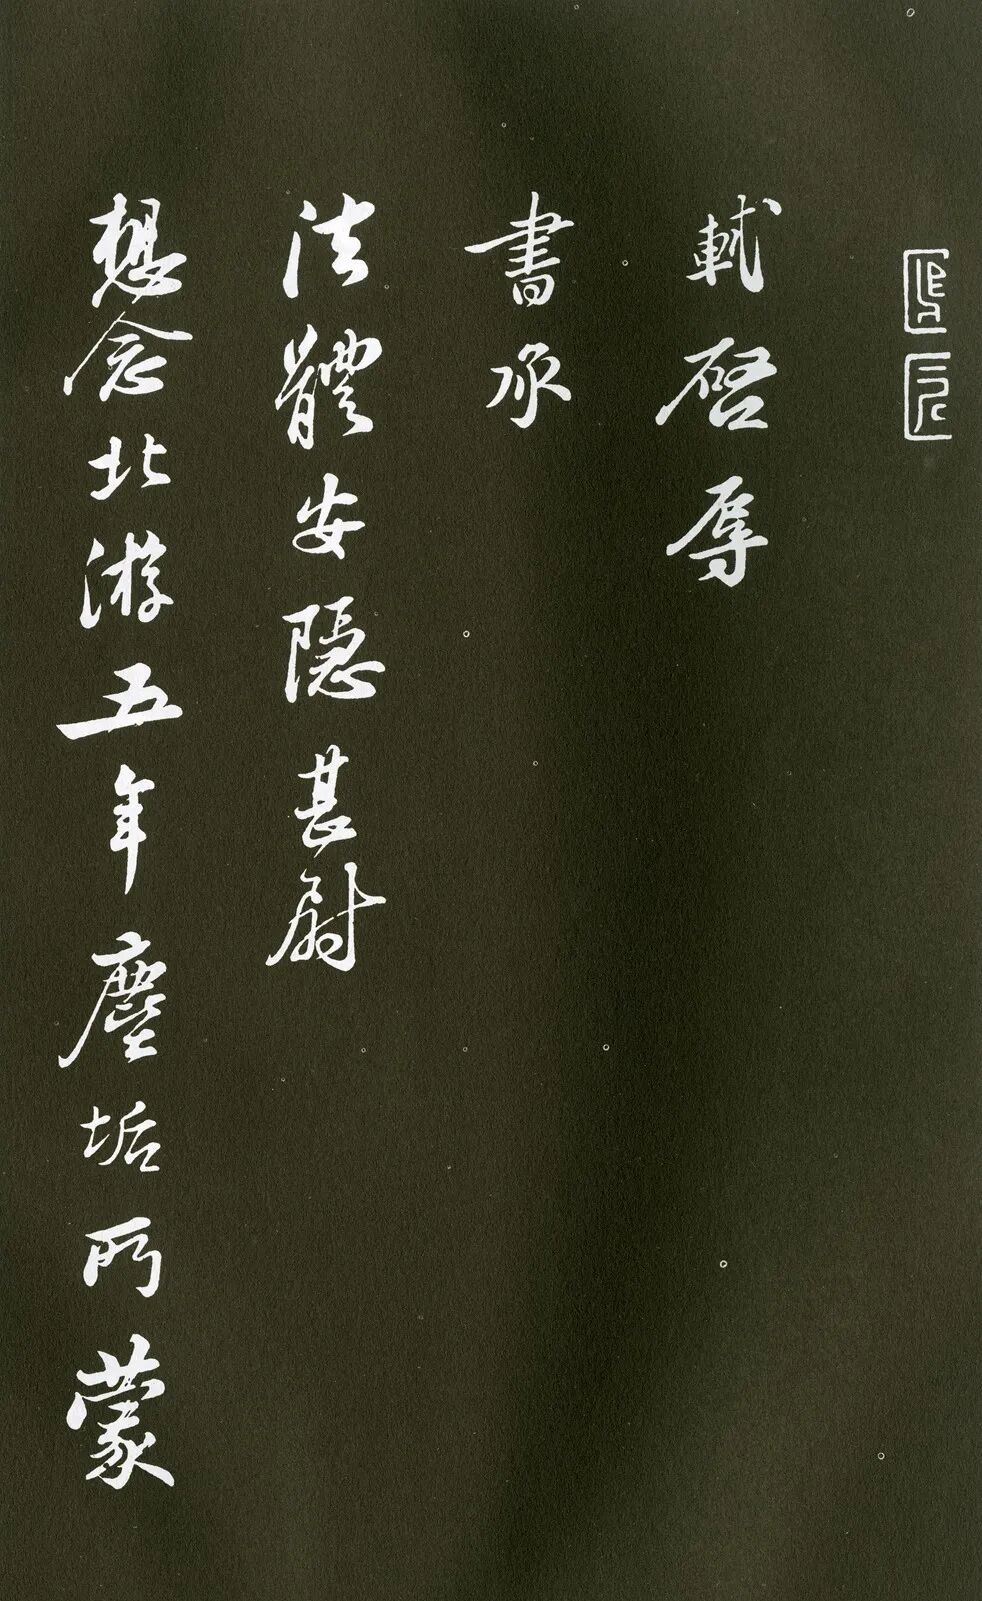 軾啓辱
書承
法體安隱甚尉
想念北游五年塵垢所蒙